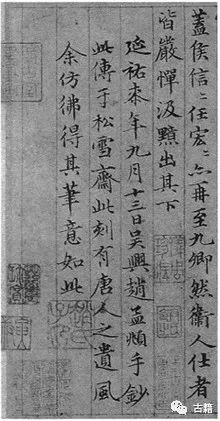 蓋侯信〻任宏〻亦再至九卿然衛人仕者
皆嚴憚汲黯出其下
延祐柒年九月十三日吳興趙孟頫手鈔
此傳于松雪齋此刻有唐人之遺風
余仿彿得其筆意如此
古籍